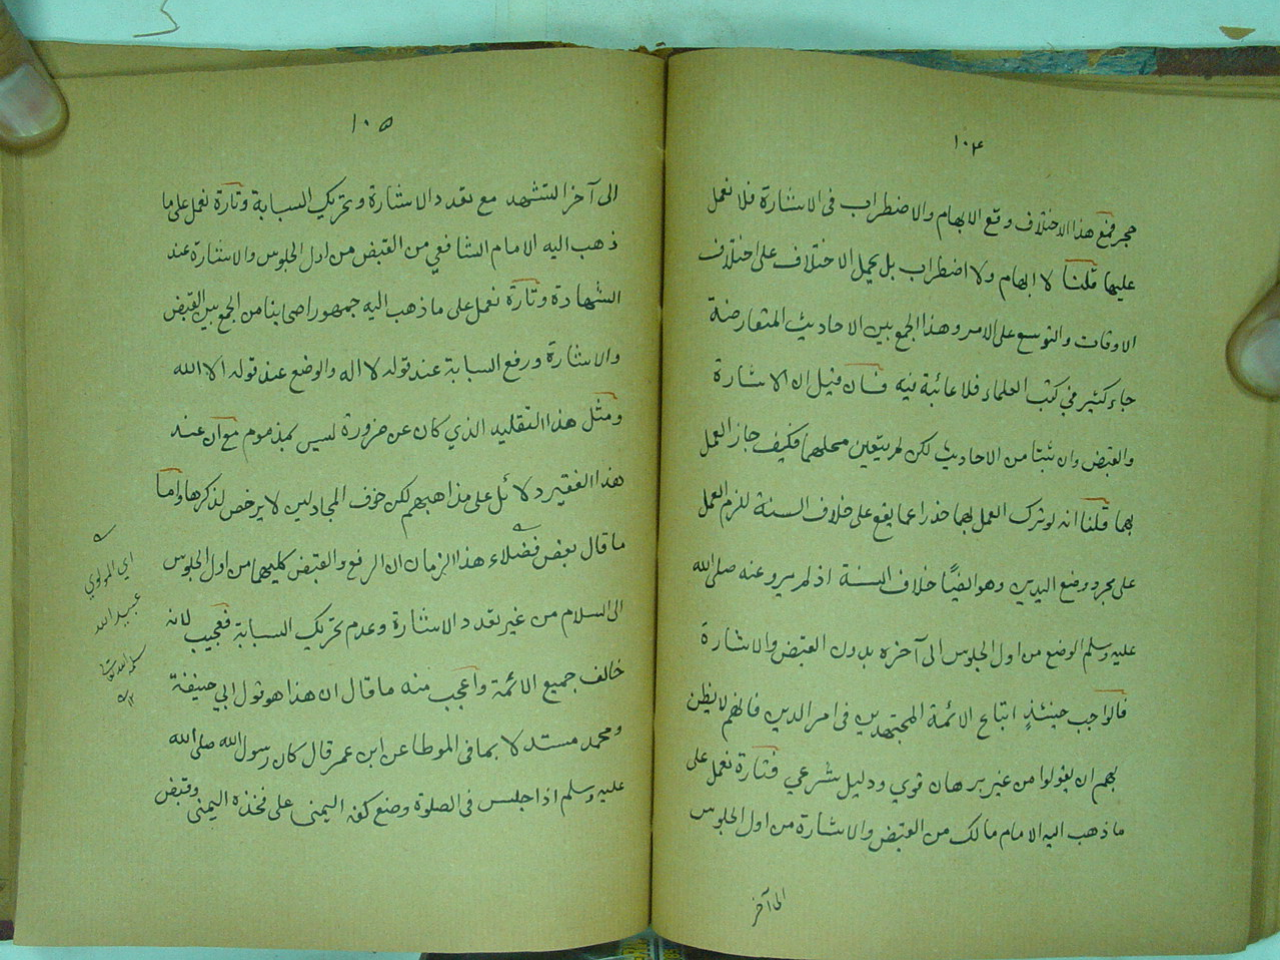 ١٠٤
حجر فمع هذا الاختلاف وقع الابهام والاضطراب فى الاشارة فلا نعمل
عليها قلنا لا ابهام ولا اضطراب بل يحمل الاختلاف على اختلاف
الاوقات والتوسع على الامر وهذا الجمع بين الاحاديث المتعارضة
جاء كثير فى كتب العلماء فلا عائبة فيه فان قيل ان الاشارة
والقبض وان ثبتا من الاحاديث لكن لم يتعين محلهما فكيف جاز العمل
بهما قلنا انه لو ترك العمل بهما حذرا عما يقع على خلاف السنة للزم العمل
على مجرد وضع اليدين وهو ايضًا خلاف السنة اذ لم يرو عنه صلى الله
عليه وسلم الوضع من اول الجلوس الى آخره بدون القبض والاشارة
فالواجب حينئذٍ اتباع الائمة المجتهدين فى امر الدين فانهم لا يظن
بهم ان يقولوا من غير برهان قوي ودليل شرعي فتارة نعمل على
ما ذهب اليه الامام مالك من القبض والاشارة من اول الجلوس
الى آخر
١٠٥
الى آخر التشهد مع تعدد الاشارة وتحريك السبابة وتارة نعمل على ما
ذهب اليه الامام الشافعي من القبض من اول الجلوس والاشارة عند
الشهادة وتارة نعمل على ما ذهب اليه جمهور اصحابنا من الجمع بين القبض
والاشارة ورفع السبابة عند قوله لا اله والوضع عند قوله الا الله
ومثل هذا التقليد الذي كان عن ضرورة ليس بمذموم مع ان عند
هذا الفقير دلائل على مذاهبهم لكن خوف المجادلين لا يرخص لذكرها واما
ما قال بعض فضلاء هذا الزمان ان الرفع والقبض كليهما من اول الجلوس
الى السلام من غير تعدد الاشارة وعدم تحريك السبابة فعجيب لانه
خالف جميع الائمة واعجب منه ما قال ان هذا هو قول ابي حنيفة
ومحمد مستدلا بما فى الموطا عن ابن عمر قال كان رسول الله صلى الله
عليه وسلم اذا جلس فى الصلوة وضع كفه اليمنى على فخذه اليمنى وقبض
اي المولوي
عبيد الله
سلمه الله
١٢